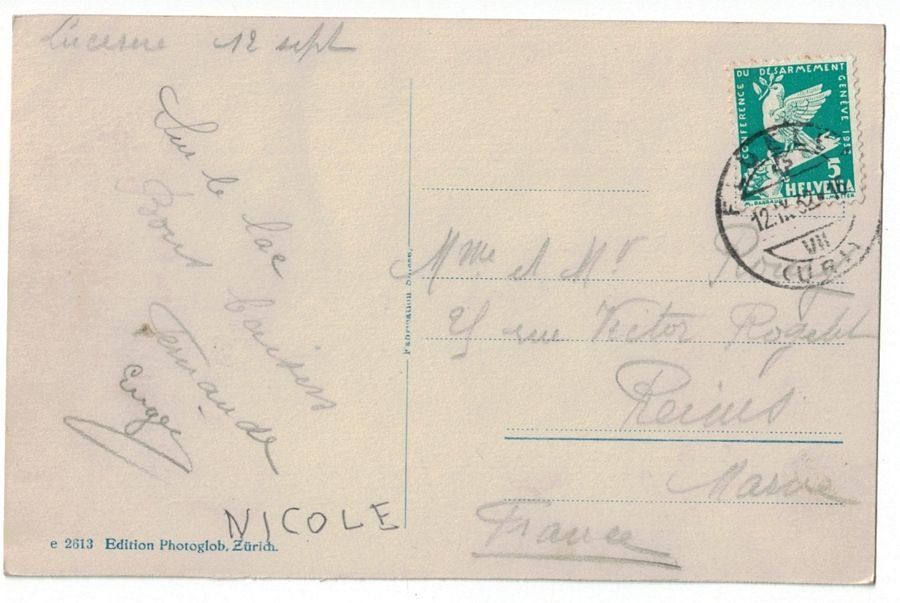 Lucerne 12 sept
Sur le lac baisers
Pour Fernande
NICOLE
e 2613 Edition Photoglob, Zürich.
Fabrication Suisse
CONFERENCE DU DESARMEMENT GENÈVE 1932
5
HELVETIA
12.IX.32
VII
(URI)
Mme et Mr
rue Victor Rogelet
Reims
Marne
France